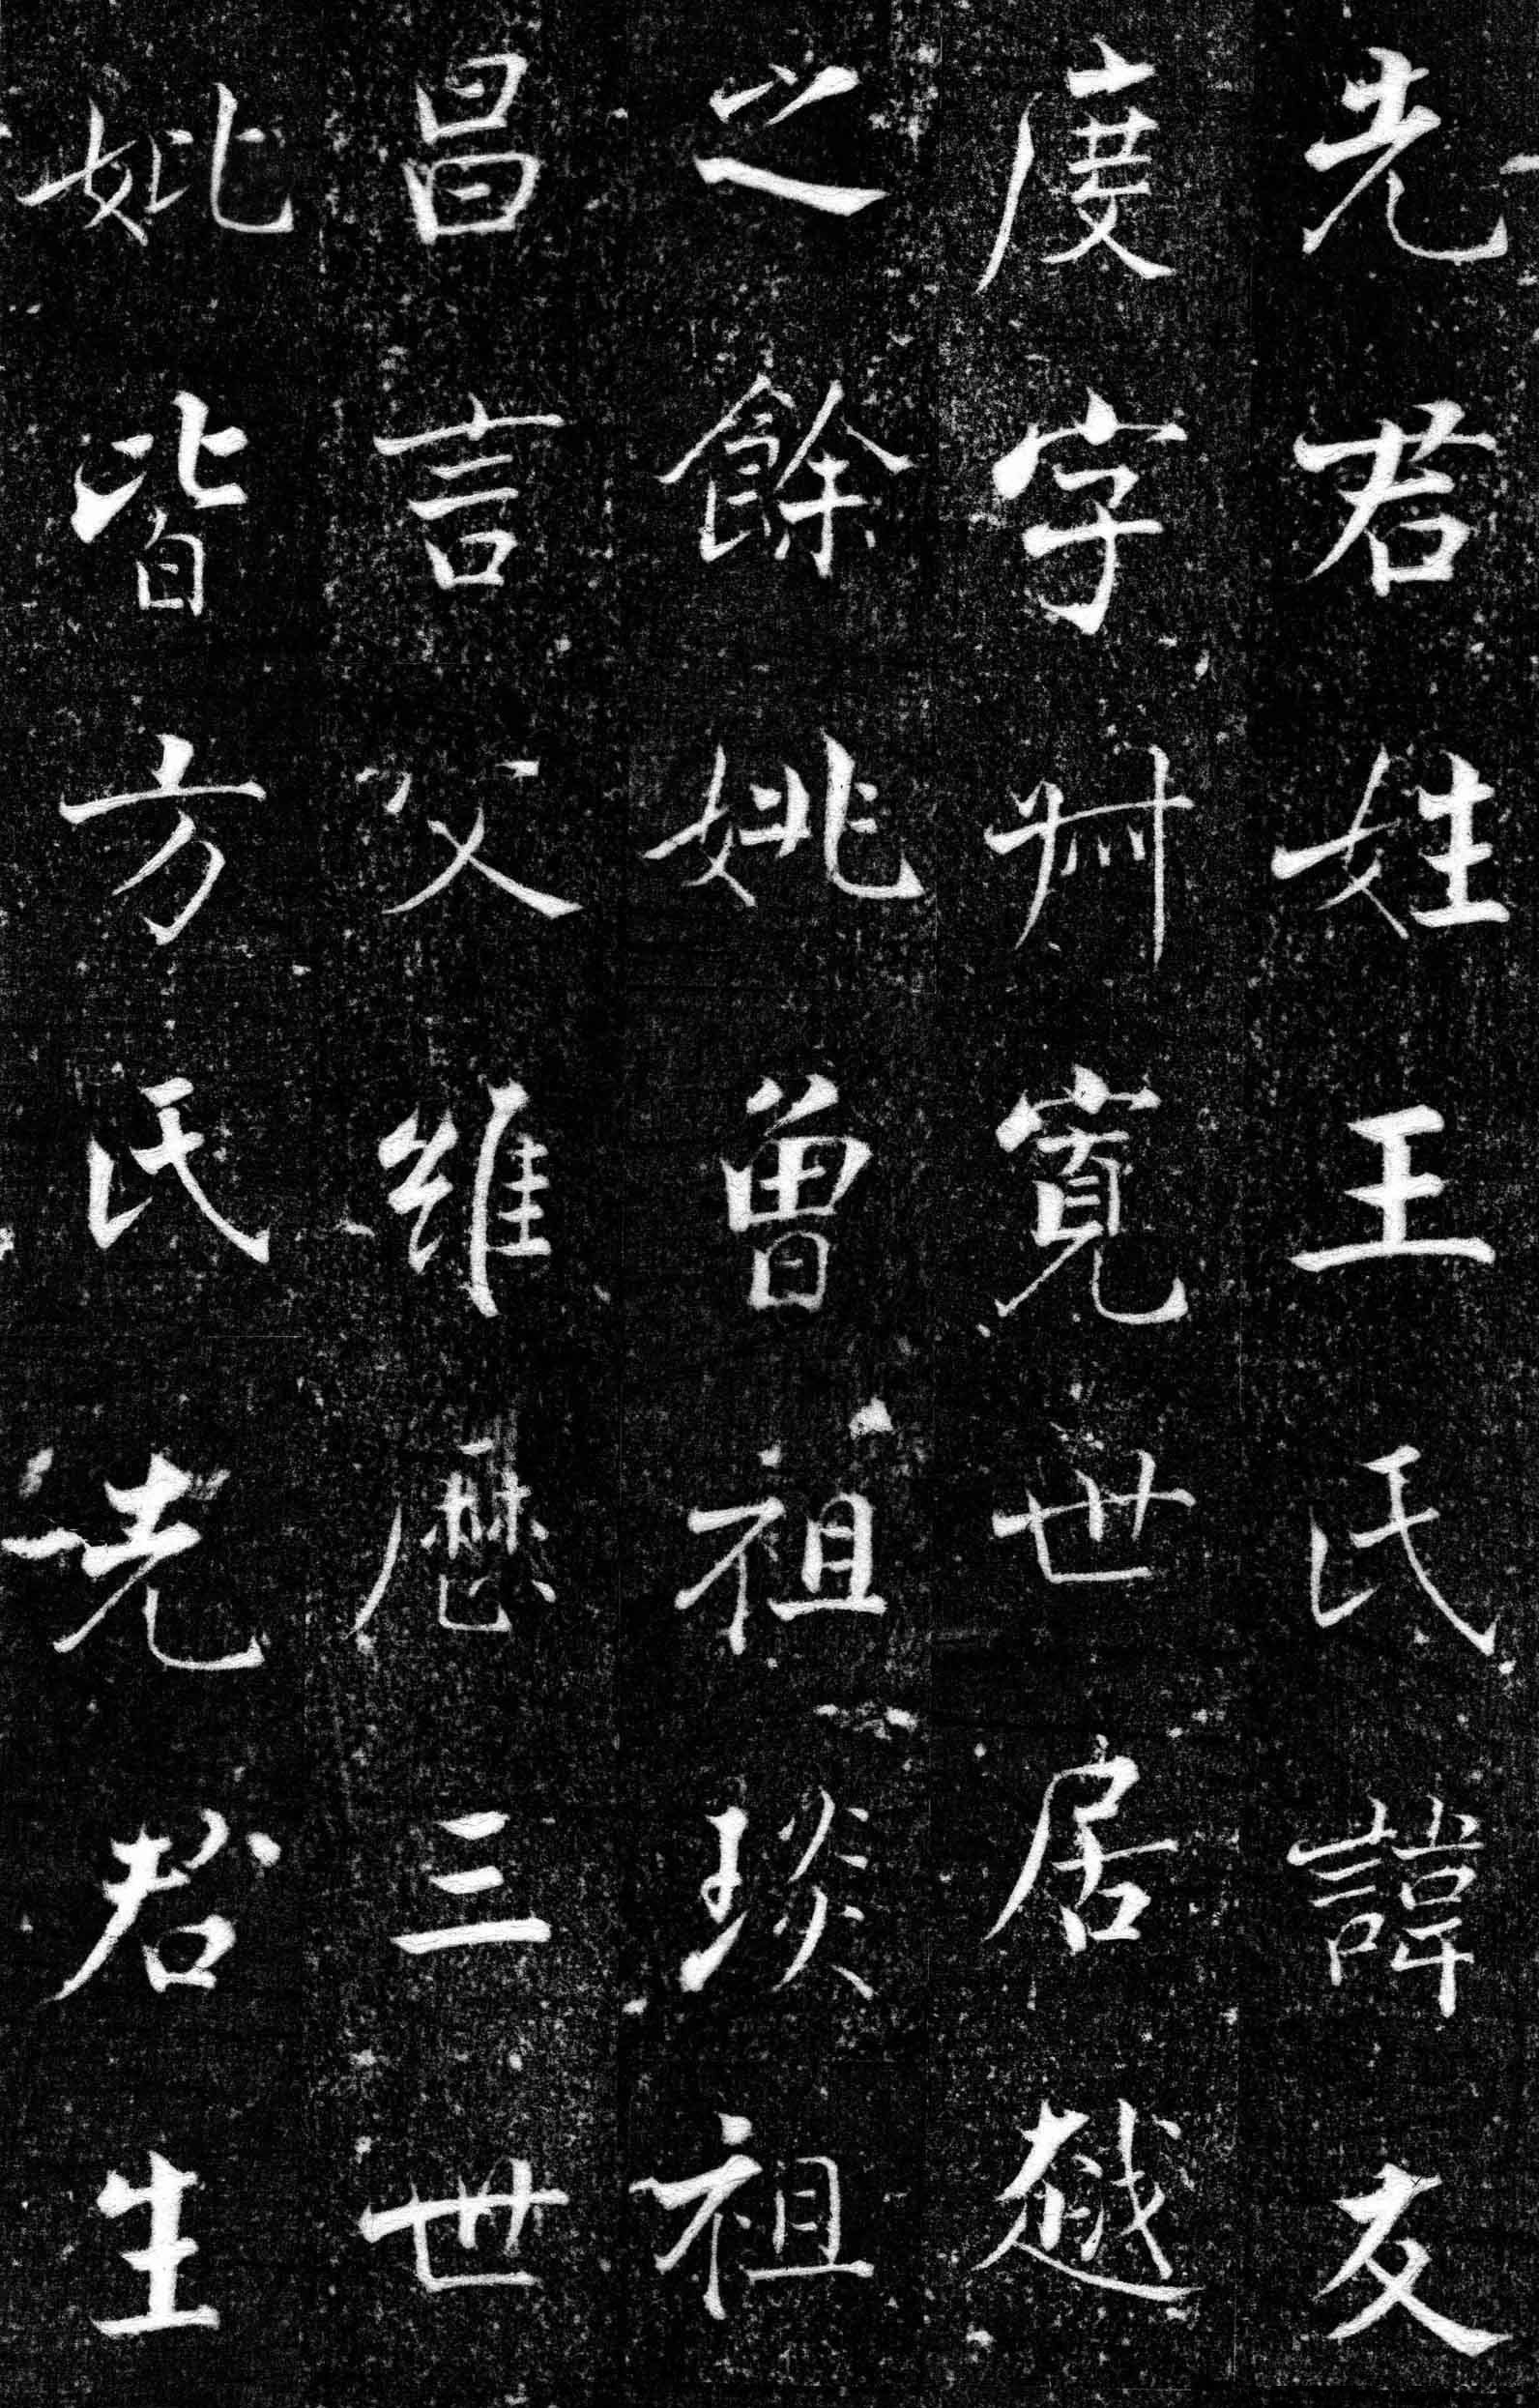 先君姓王氏諱友
度字州寛世居越
之餘姚曾祖琰祖
昌言父維歴三世
妣皆方氏先君生